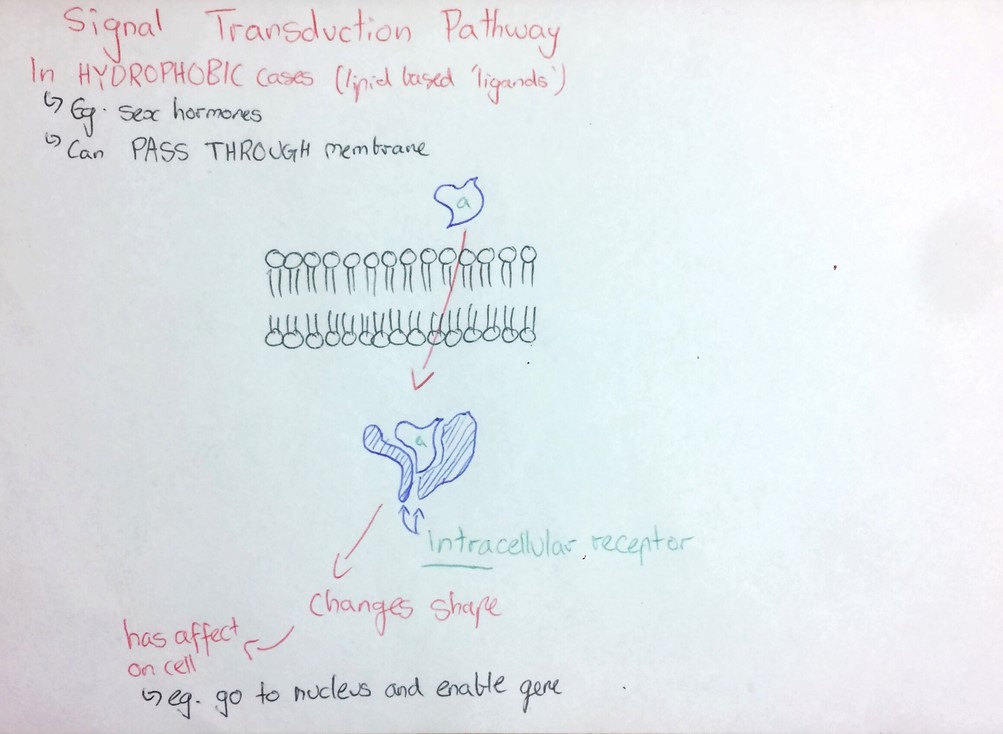 Signal Transduction Pathway
In HYDROPHOBIC cases (lipid based 'ligands')
↳ Eg. sex hormones
↳ Can PASS THROUGH membrane
a
a
Intracellular receptor
Changes shape
has affect
on cell
↳ eg. go to nucleus and enable gene